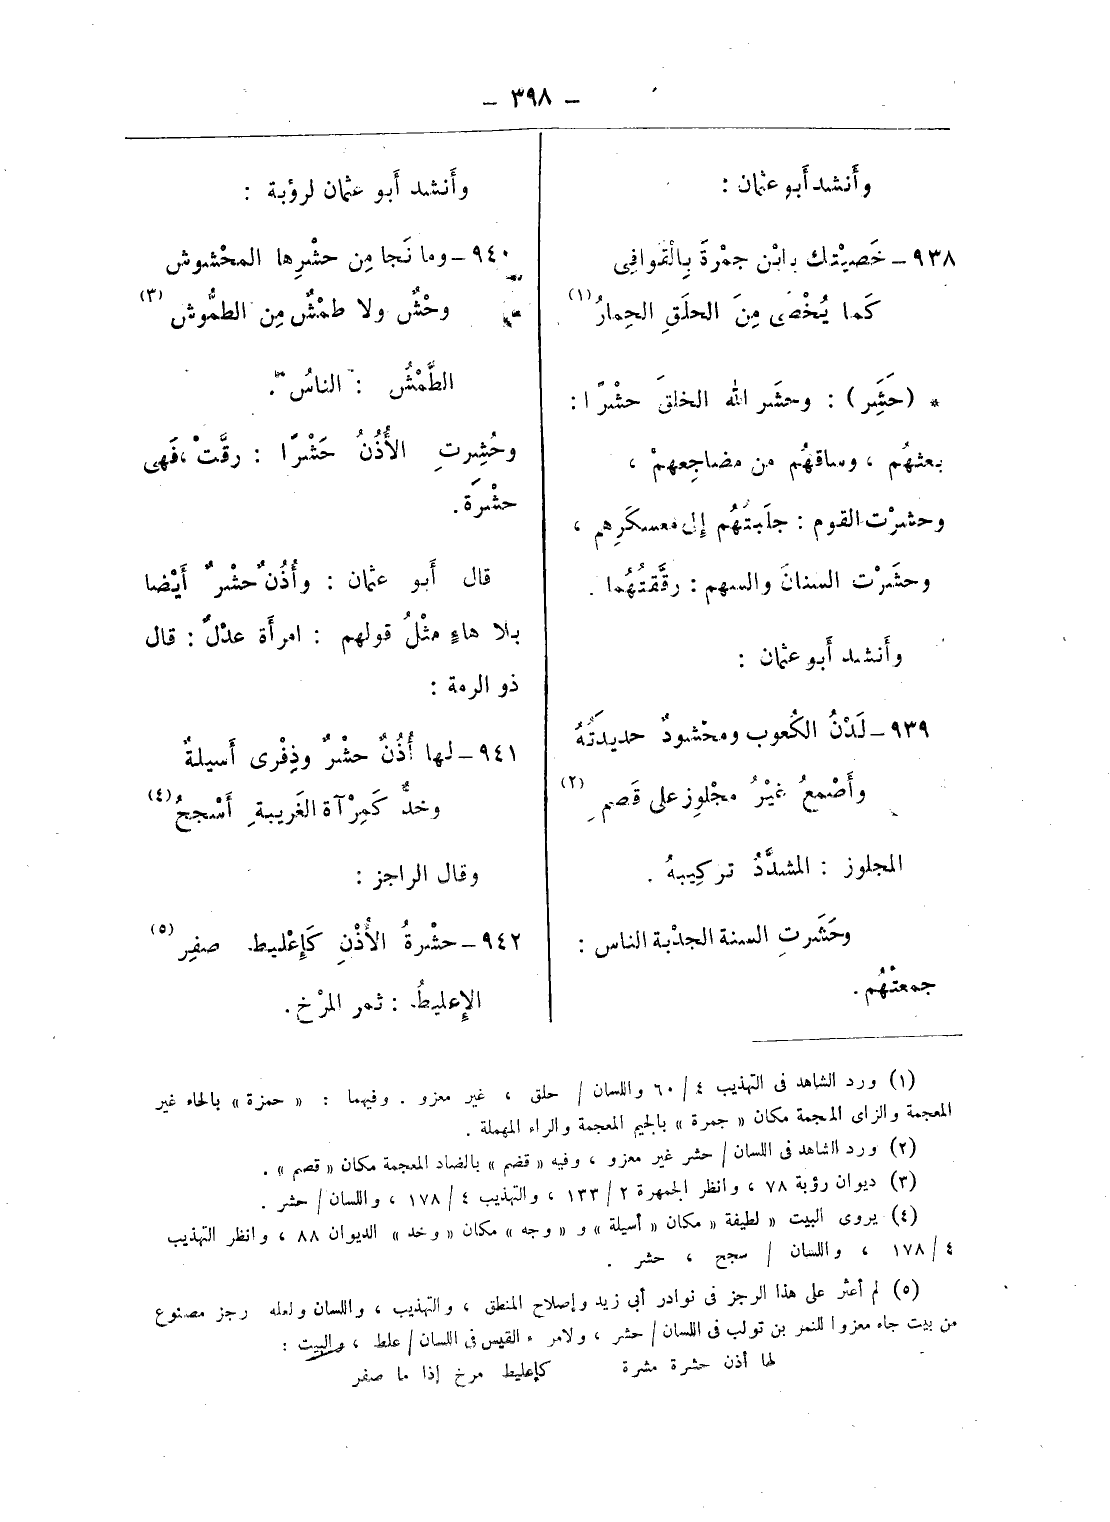 – ٣٩٨ –
وأَنشد أَبو عثمان :
٩٣٨ – خَصيْتك يا ابْن جمْرةَ بِالْقوافِى
كَما يُخْصَى مِنَ الحلَقِ الحِمارُ (١)
* (حَشَِر) : وحشَر اللّه الخلقَ حشْرًا :
بعثهُم ، وساقهُم من مضاجِعهمْ ،
وحشرْت القوم : جلَبتهُم إلى معسكَرِهم ،
وحشَرْت السنانَ والسهم : رقَّقتُهُما .
وأَنشد أَبو عثمان :
٩٣٩ – لَدْنُ الكُعوب ومحْشودٌ حديدَتُهُ
وأَصْمعُ غيْرُ مجْلوزٍ على قَصمِ (٢)
المجلوز : المشدَّدُ تركِيبهُ .
وحَشَرتِ السنة الجدْبة الناس :
جمعتْهُم .
وأَنشد أَبو عثمان لرؤبة :
٩٤٠ – وما نَجا مِن حشْرِها المحْشوش
وحْشٌ ولا طمْشٌ مِن الطمُّوش (٣)
الطَّمْشُ : الناسُ .
وحُشِرتِ الأُذُنُ حَشْرًا : رقَّتْ ، فَهى
حشْرَة .
قال أَبو عثمان : وأُذُن حشْرٌ أَيْضا
بلا هاءٍ مثْلُ قولهم : امرأَة عدْلٌ : قال
ذو الرمة :
٩٤١ – لها أُذُنٌ حشْرٌ وذِفْرى أَسيلةٌ
وخدٌّ كَمِرْآة الغَريبةِ أَسْجحُ (٤)
وقال الراجز :
٩٤٢ – حشْرةُ الأُذْنِ كَإِعْليط صفِر (٥)
الإِعليطُ : ثمر المرْخ .
(١) ورد الشاهد فى التهذيب ٤ / ٦٠ واللسان / حلق ، غير معزو . وفيهما : « حمزة » بالحاء غير
المعجمة والزاى المعجمة مكان « جمرة » بالجيم المعجمة والراء المهملة .
(٢) ورد الشاهد فى اللسان / حشر غير معزو ، وفيه « قضم » بالضاد المعجمة مكان « قصم » .
(٣) ديوان رؤبة ٧٨ ، وانظر الجمهرة ٢ / ١٣٣ ، والتهذيب ٤ / ١٧٨ ، واللسان / حشر .
(٤) يروى البيت « لطيفة » مكان « أسيلة » و « وجه » مكان « وخد » الديوان ٨٨ ، وانظر التهذيب
٤ / ١٧٨ ، واللسان / سجح ، حشر .
(٥) لم أعثر على هذا الرجز فى نوادر أبى زيد وإصلاح المنطق ، والتهذيب ، واللسان ولعله رجز مصنوع
من بيت جاء معزوا للنمر بن تولب فى اللسان / حشر ، ولامرىء القيس فى اللسان / علط ، والبيت :
لها أذن حشرة مشرة كإعليط مرخ إذا ما صفر